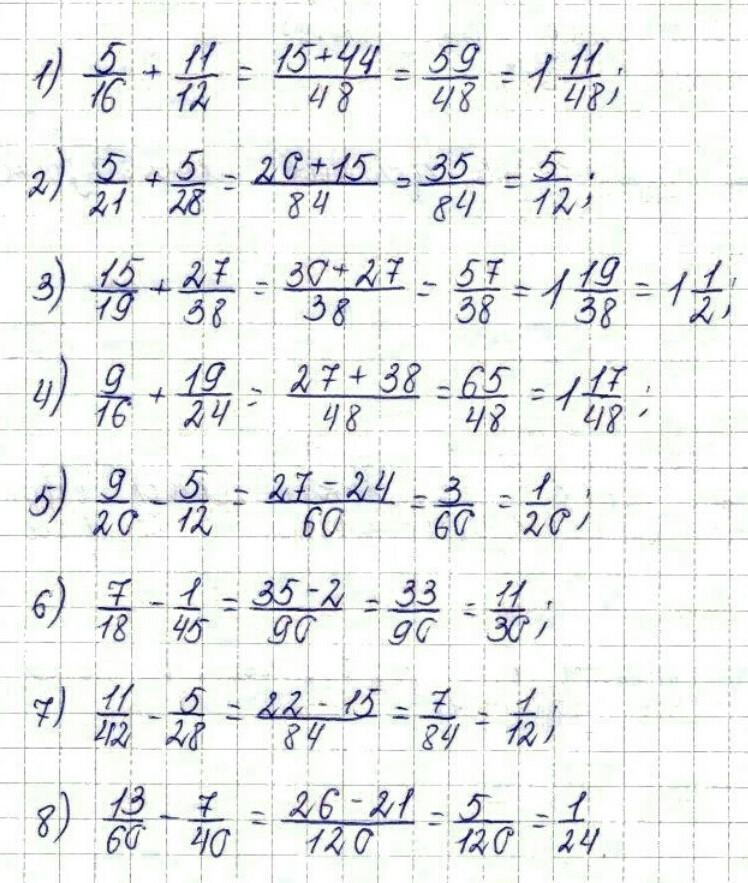 1) 5/16 + 11/12 = (15+44)/48 = 59/48 = 1 11/48;
2) 5/21 + 5/28 = (20+15)/84 = 35/84 = 5/12;
3) 15/19 + 27/38 = (30+27)/38 = 57/38 = 1 19/38 = 1 1/2;
4) 9/16 + 19/24 = (27+38)/48 = 65/48 = 1 17/48;
5) 9/20 - 5/12 = (27-24)/60 = 3/60 = 1/20;
6) 7/18 - 1/45 = (35-2)/90 = 33/90 = 11/30;
7) 11/42 - 5/28 = (22-15)/84 = 7/84 = 1/12;
8) 13/60 - 7/40 = (26-21)/120 = 5/120 = 1/24